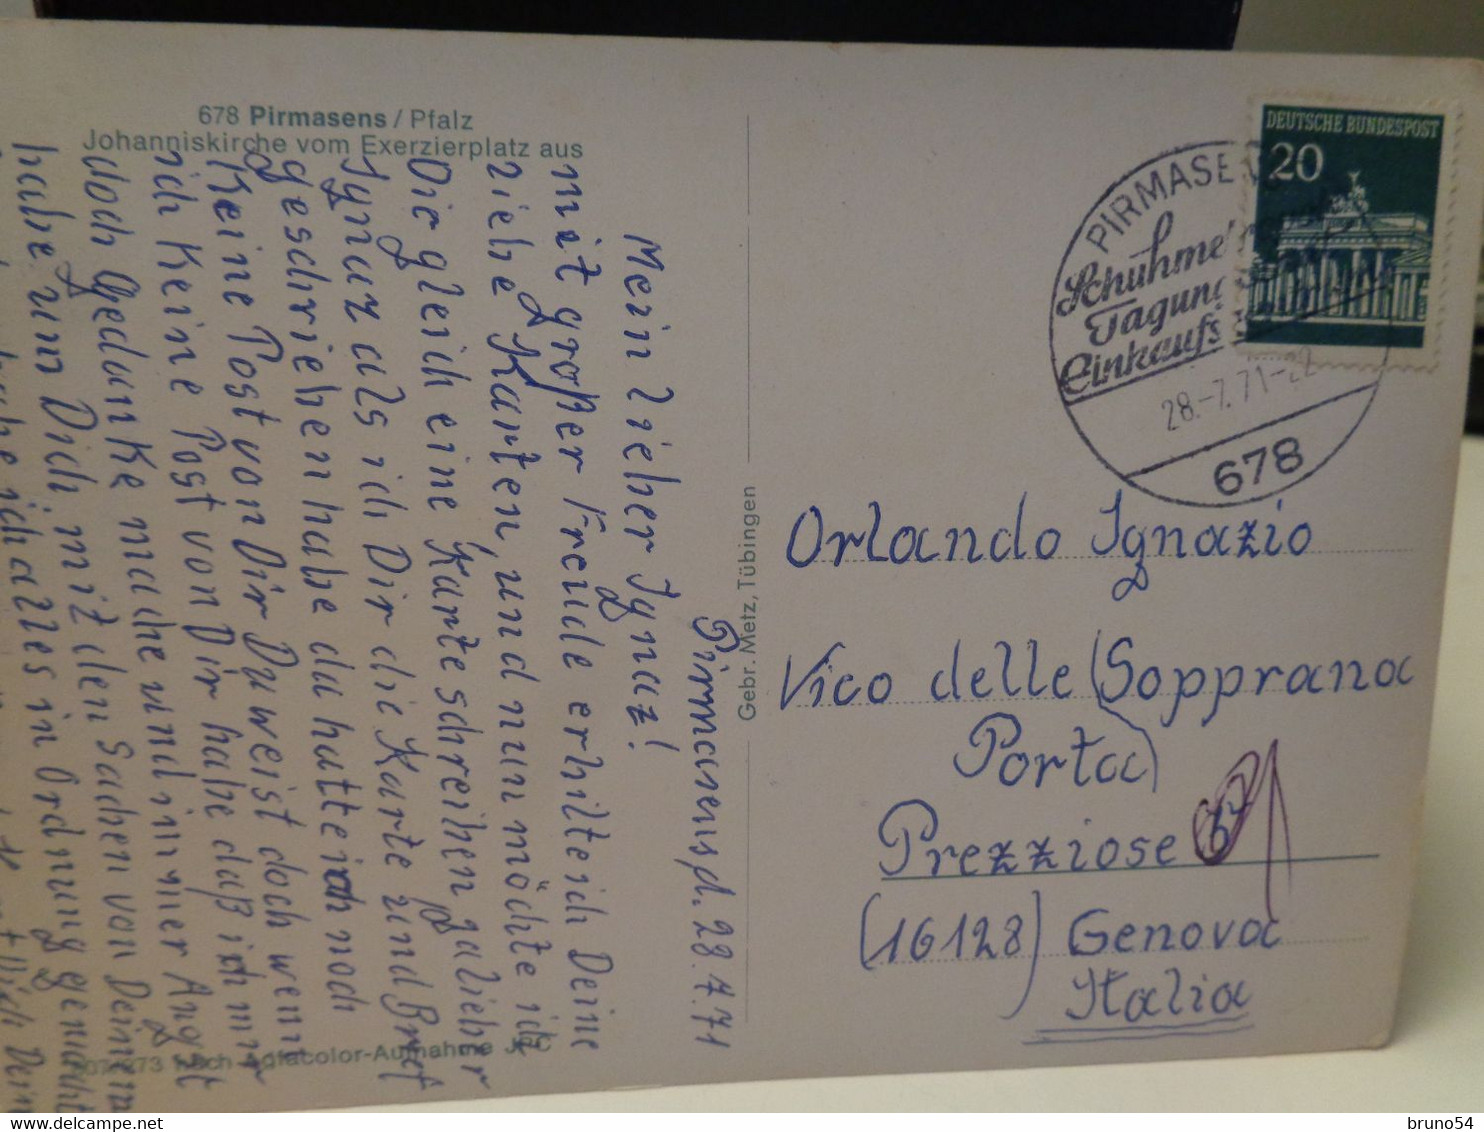 678 Pirmasens / Pfalz
Johanniskirche vom Exerzierplatz aus
Pirmasens, d. 28.7.71
Mein lieber Ignaz!
mit großer Freude erhilt ich Deine
liebe Karten, und nun möchte ich
Dir gleich eine Karte schreiben ja lieber
Ignaz als ich Dir die Karte und Brief
geschrieben habe da hatte ich noch
Keine Post von Dir Du weist doch wenn
ich Keine Post von Dir habe daß ich mir
doch Gedanke mache und immer Angst
habe um Dich, mit den Sachen von Deinem
habe ich alles in Ordnung gemacht
Agfacolor-Aufnahme
Gebr. Metz, Tübingen
DEUTSCHE BUNDESPOST
20
PIRMASE
Schuhme
Tagung
Einkaufs
28.-7.71-22
678
Orlando Ignazio
Vico delle (Sopprana
Porta)
Prezziose
(16128) Genova
Italia
bruno54